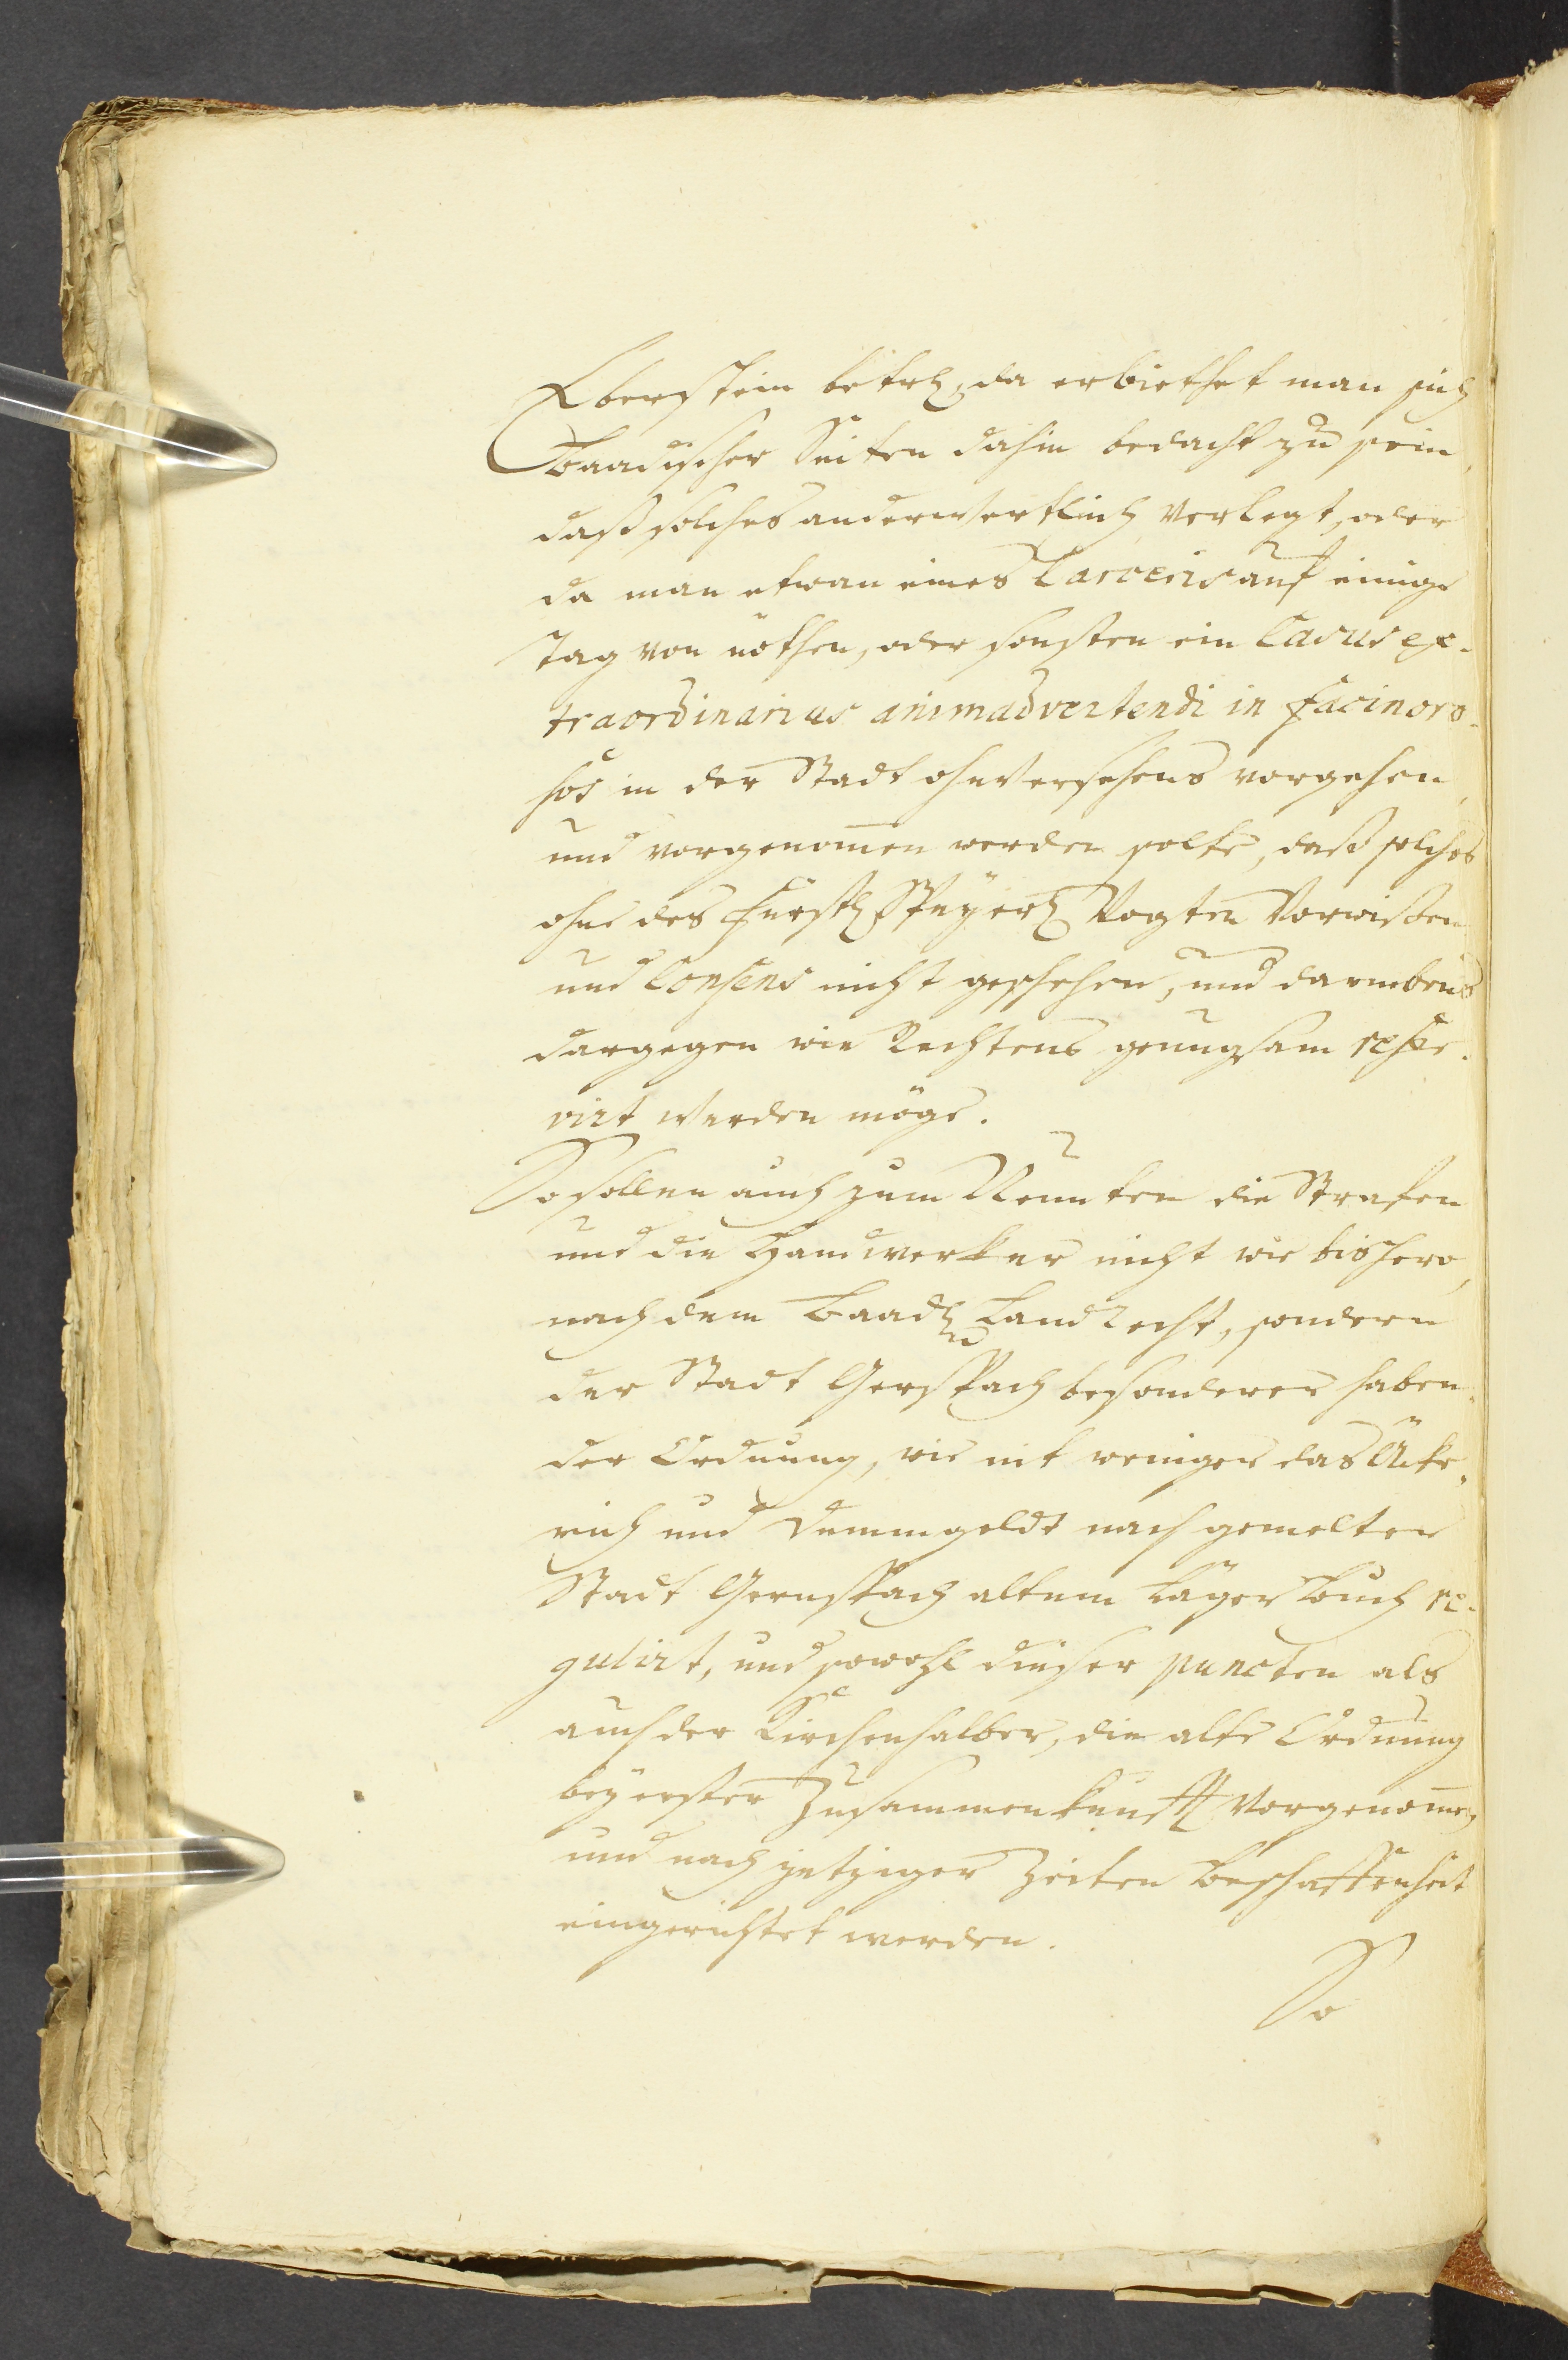 Eberstein betrl, da erbiethet man sich
Baadischer Seiten dahin bedacht zu sein,
daß solches anderwertlich verlegt, oder
da man etwan eines Carceris auf einige
Tag von nöthen, oder sonsten ein Casus ex-
traordinarius animadvertendi in facinoro-
sos in der Stadt ohnversehens vorgehen,
und vorgenom̅en werden solte, daß solches
ohne des Fürstl Speÿerl Vogten Vorwißen
und Consens nicht geschehen, und darneben
dargegen wie Rechtens genugsam reser-
virt werden möge.
So sollen auch zum Neunten die Strafen
und die Handwerker nicht wie bishero,
nach dem Baadl Landrecht, sondern
der Stadt Gerspach besonderer haben-
der Ordnung, wie nit weniger das Äke-
rich und Dummgeldt nach gemelter
Stadt Gernspach altem Lägerbuch re-
gulirt, und sowohl dieser puncten als
auch der Kirchenhalber, die alte Ordnung
beÿ erster Zusammenkunfft vorgenom̅en,
und nach jetziger Zeiten Beschaffenheit
eingerichtet werden.
So